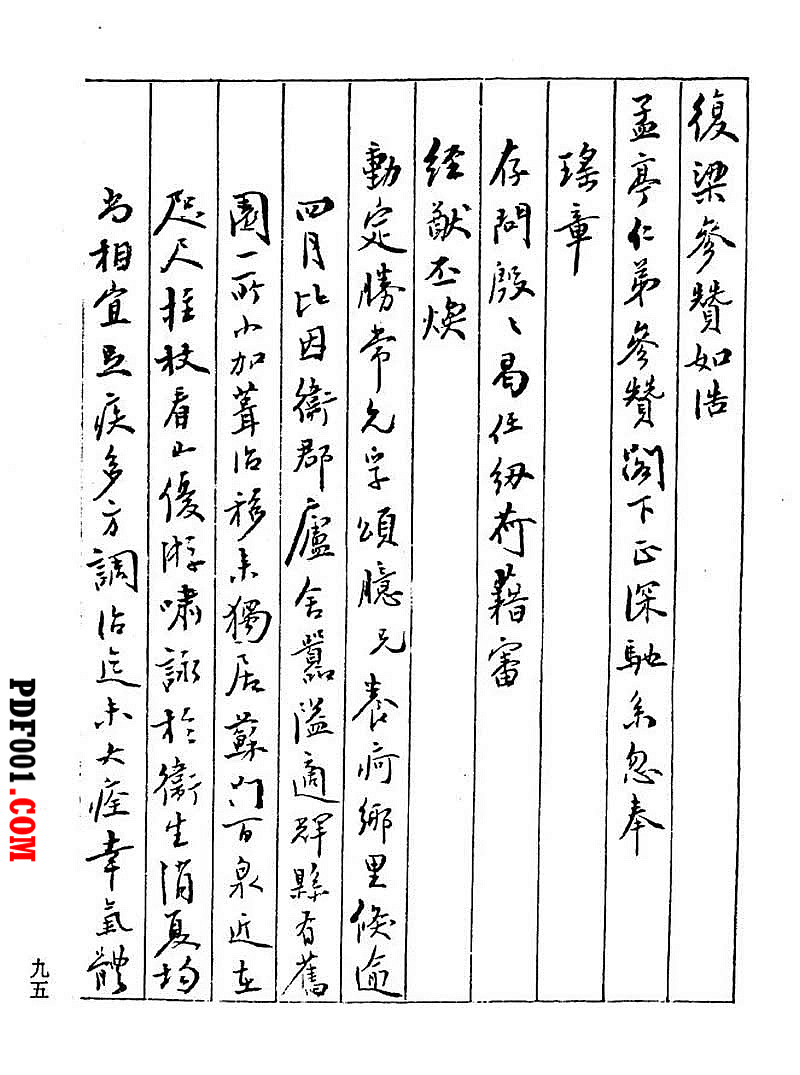 復梁參贊如浩
孟亭仁弟參贊閣下正深馳系忽奉
瑤章
存問殷〻曷任紉荷藉審
經猷丕煥
動定勝常允孚頌臆兄養疴鄉里倏逾
四月比因衛郡廬舍囂溢適輝縣有舊
園一所小加葺治移來獨居蘇門百泉近在
咫尺拄杖看山優游嘯詠於衛生消夏均
尚相宜且疾多方調治迄未大痊幸氣體
九五
PDF001.COM